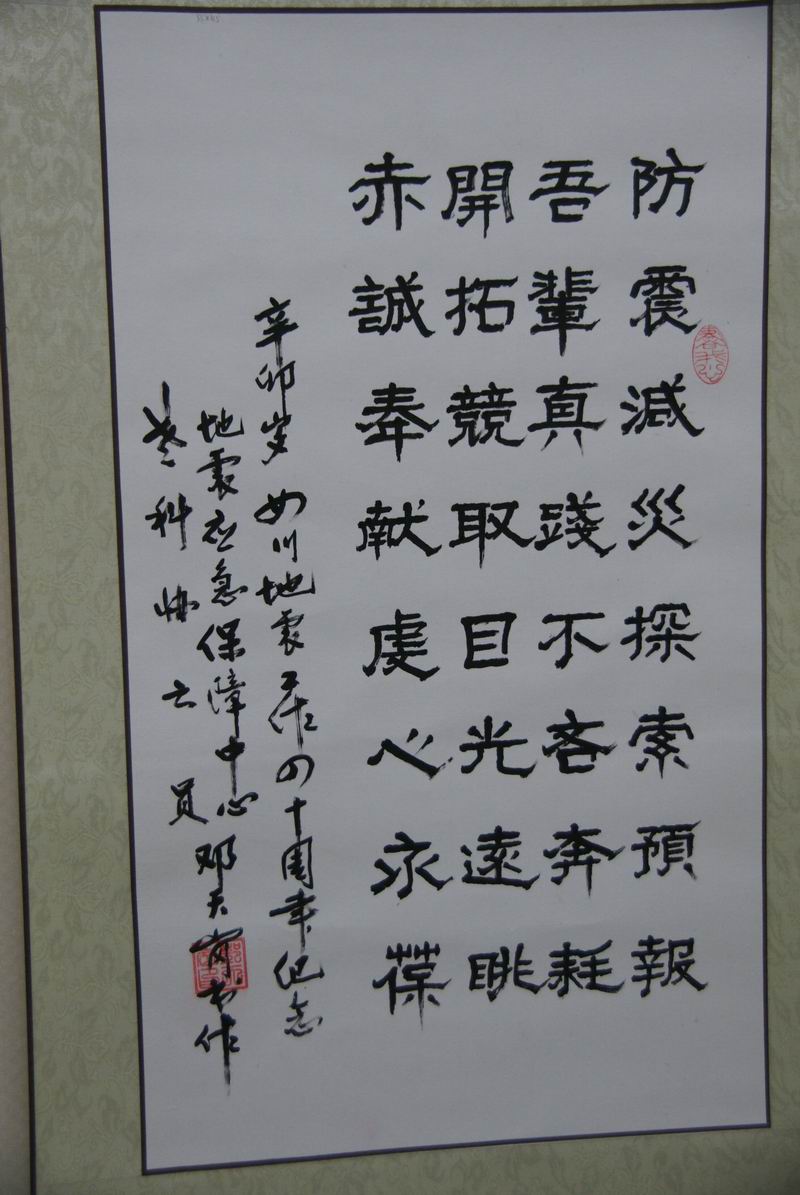 防震減災探索預報
吾輩真踐不吝奔耗
開拓競取目光遠眺
赤誠奉献虔心永葆
辛卯岁 四川地震工作四十周年纪念
地震应急保障中心 邓天书作
老科协会员